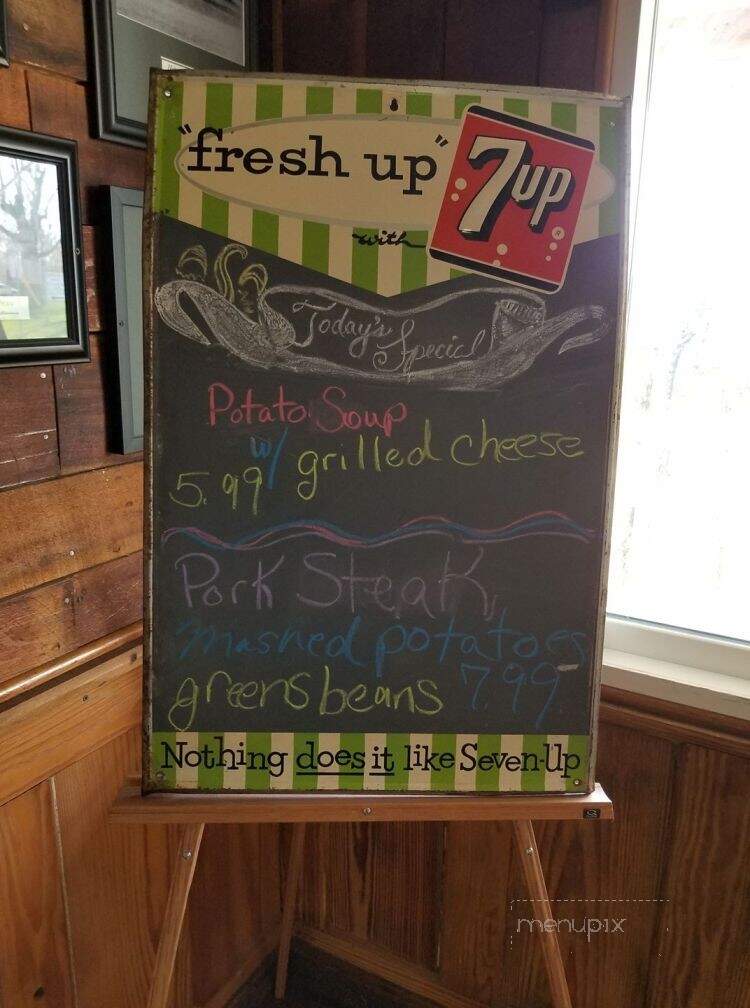 "fresh up"
7up
with
Today's Special
Potato Soup
w/ grilled cheese
5.99
Pork Steak,
mashed potatoes
greens beans 7.99
Nothing does it like Seven-Up
menupix